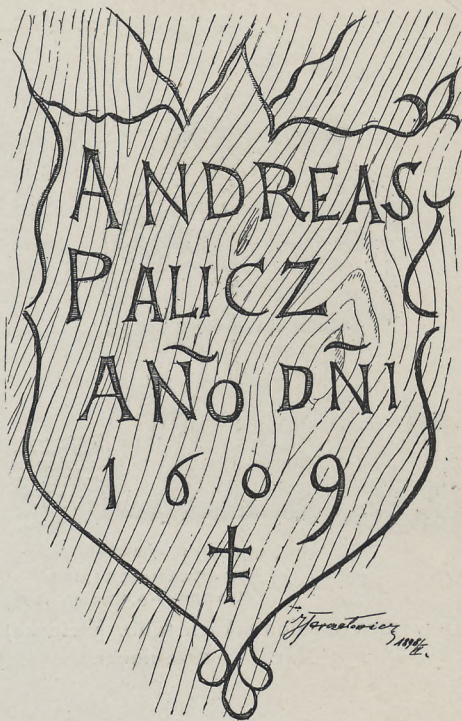 ANDREAS
PALICZ
AÑO DÑI
1609